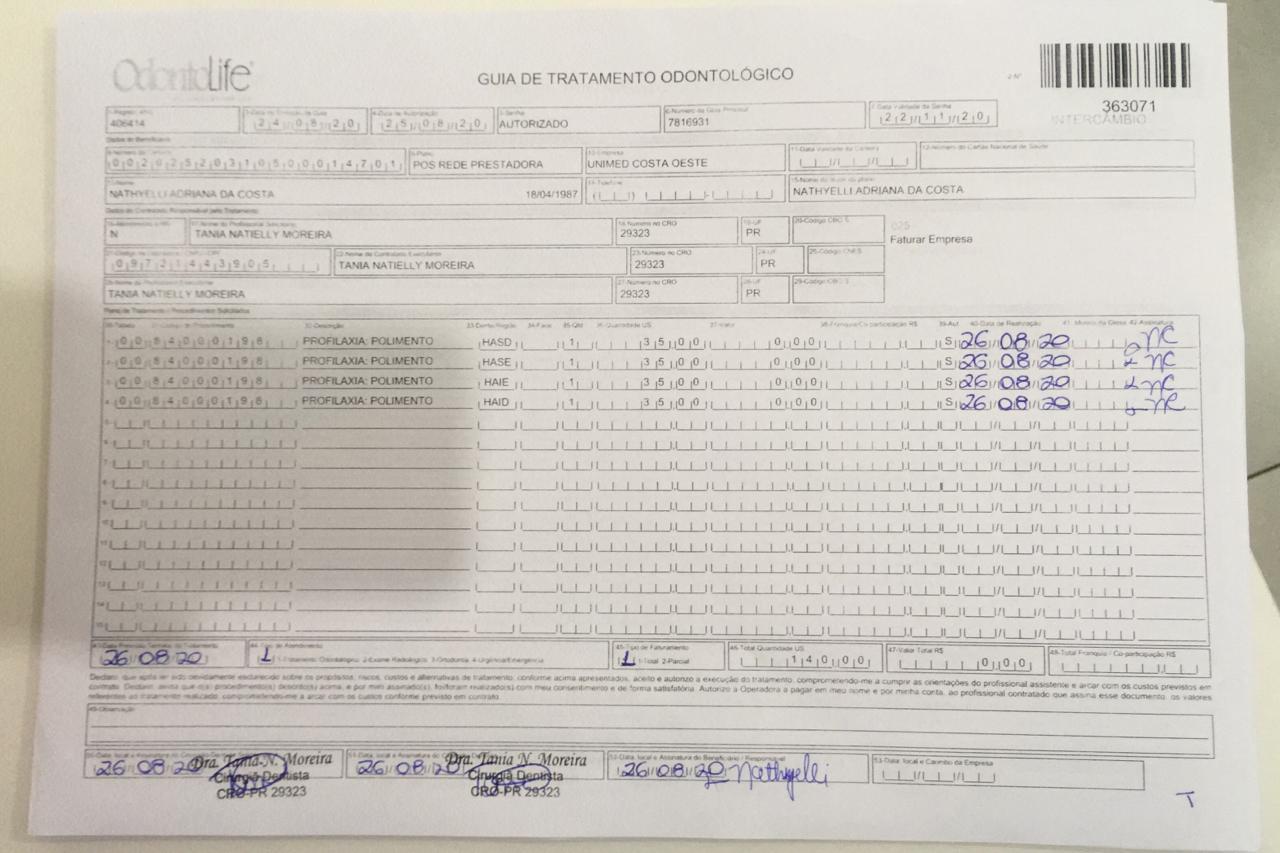 OdontoLife
GUIA DE TRATAMENTO ODONTOLÓGICO
2-Nº
363071
INTERCÂMBIO
406414
3-Data de Emissão da Guia 24/08/20
4-Data de Autorização 25/08/20
5-Senha AUTORIZADO
6-Número da Guia Principal 7816931
7-Data Validade da Senha 22/11/20
Dados do Beneficiário
9-Plano POS REDE PRESTADORA
10-Empresa UNIMED COSTA OESTE
11-Data Validade da Carteira
12-Número do Cartão Nacional de Saúde
13-Nome NATHYELLI ADRIANA DA COSTA 18/04/1987
14-Telefone
NATHYELLI ADRIANA DA COSTA
Dados do Contratado Responsável pelo Tratamento
N
17-Nome do Profissional Solicitante TANIA NATIELLY MOREIRA
18-Número no CRO 29323
19-UF PR
20-Código CBO S
025-
Faturar Empresa
09721443905
22-Nome do Contratado Executante TANIA NATIELLY MOREIRA
23-Número no CRO 29323
24-UF PR
25-Código CNES
26-Nome do Profissional Executante TANIA NATIELLY MOREIRA
27-Número no CRO 29323
28-UF PR
29-Código CBO S
Plano de Tratamento / Procedimentos Solicitados
30-Tabela 31-Código do Procedimento 32-Descrição 33-Dente/Região 34-Face 35-Qtd 36-Quantidade US 37-Valor 38-Franquia/Co-participação R$ 39-Aut 40-Data de Realização 41-Motivo da Glosa 42-Assinatura
1- 00 84000198 PROFILAXIA: POLIMENTO HASD 1 35 00 0 00 S 26/08/20 NC
2- 00 84000198 PROFILAXIA: POLIMENTO HASE 1 35 00 0 00 S 26/08/20 NC
3- 00 84000198 PROFILAXIA: POLIMENTO HAIE 1 35 00 0 00 S 26/08/20 NC
4- 00 84000198 PROFILAXIA: POLIMENTO HAID 1 35 00 0 00 S 26/08/20 NC
5-
6-
7-
8-
9-
10-
11-
12-
13-
14-
15-
43-Data Previsão Término do Tratamento 26/08/20
44-Tipo de Atendimento 1 1-Tratamento Odontológico 2-Exame Radiológico 3-Ortodontia 4-Urgência/Emergência
45-Tipo de Faturamento 1 1-Total 2-Parcial
46-Total Quantidade US 140 00
47-Valor Total R$ 0 00
48-Total Franquia / Co-participação R$
Declaro, que após ter sido devidamente esclarecido sobre os propósitos, riscos, custos e alternativas de tratamento, conforme acima apresentados, aceito e autorizo a execução do tratamento, comprometendo-me a cumprir as orientações do profissional assistente e arcar com os custos previstos em
contrato. Declaro, ainda que o(s) procedimento(s) descrito(s) acima, e por mim assinado(s), foi/foram realizado(s) com meu consentimento e de forma satisfatória. Autorizo a Operadora a pagar em meu nome e por minha conta, ao profissional contratado que assina esse documento, os valores
referentes ao tratamento realizado, comprometendo-me a arcar com os custos conforme previsto em contrato.
49-Observação
26/08/20 Dra. Tania N. Moreira
Cirurgiã Dentista
CRO-PR 29323
26/08/20 Dra. Tania N. Moreira
Cirurgiã Dentista
CRO-PR 29323
52-Data, local e Assinatura do Beneficiário / Responsável
26/08/20 Nathyelli
53-Data, local e Carimbo da Empresa
T